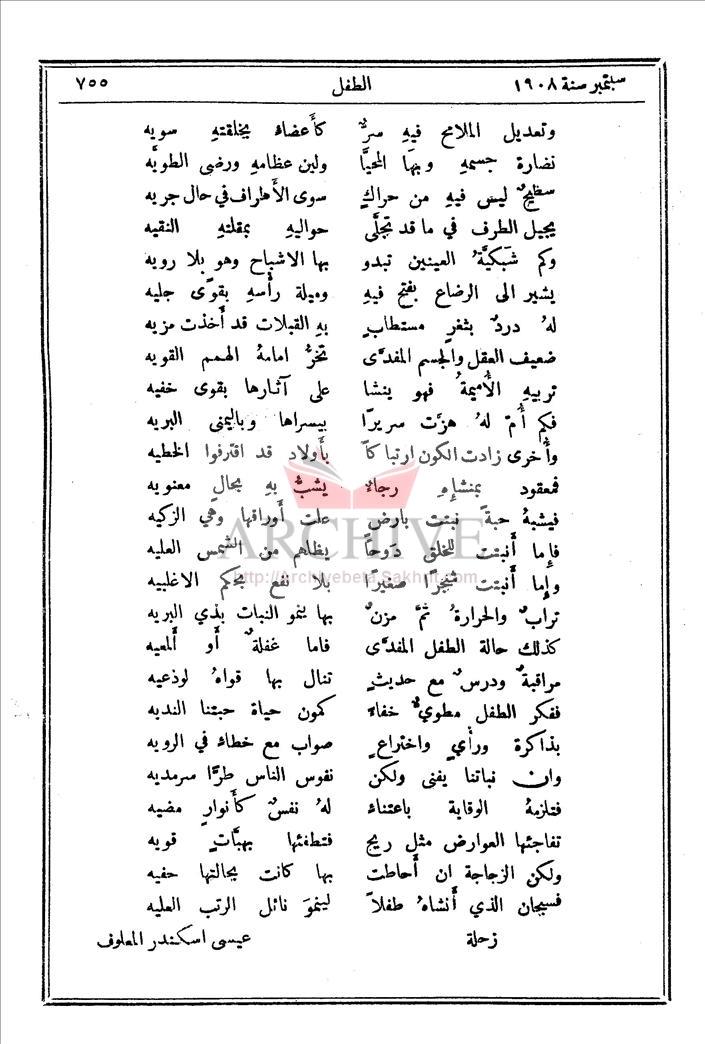 سبتمبر سنة ١٩٠٨ الطفل ٧٥٥
وتعديل الملامح فيهِ سرٌّ كأَعضاء بخلقتهِ سويه
نضارة جسمهِ وبهَا المحيَّا ولين عظامهِ ورضى الطويَّه
سطيحٌ ليس فيهِ من حراكٍ سوى الأَطراف في حال جريه
يجيل الطرف في ما قد تجلَّى حواليهِ بمقلتهِ النقيه
وكم شبكيَّةُ العينين تبدو بها الاشباح وهو بلا رويه
يشير الى الرضاع بفتح فيهِ وميلة رأْسهِ بقوًى جليه
لهُ دردٌ بثغرٍ مستطابٍ بهِ القبلات قد أَخذت مزيه
ضعيف العقل والجسم المفدَّى تخرُّ امامهُ الهمم القويه
تربيهِ الأُميمةُ فهو ينشا على آثارها بقوى خفيه
فكم أُمّ لهُ هزَّت سريرًا بيسراها وباليمنى البريه
وأُخرى زادت الكون ارتباكاً بأَولاد قد اقترفوا الخطيه
فمعقود بمنشإِهِ رجاءٌ يشبُّ بهِ بحالٍ معنويه
فيشبهُ حبةً نبتت بارض علت أَوراقها وهي الزكيه
فإِما أَنبتت للخلق دَوحاً يظلهم من الشمس العليه
وإِما أَنبتت شجرًا صغيرًا بلا نفع بحكم الاغلبيه
ترابٌ والحرارةُ ثمَّ مزنٌ بها ينمو النبات بذي البريه
كذلك حالة الطفل المفدَّى فاما غفلةٌ أَو أَلمعيه
مراقبةٌ ودرسٌ مع حديثٍ تنال بها قواهُ لوذعيه
ففكر الطفل مطويٌّ خفاءً كمون حياة حبتنا النديه
بذاكرة ورأْيٍ واختراعٍ صواب مع خطاء في الرويه
وان نباتنا يفنى ولكن نفوس الناس طرًّا سرمديه
فتلزمهُ الوقاية باعتناء لهُ نفسٌ كأَنوارٍ مضيه
تفاجئها العوارض مثل ريح فتطفئها بهبَّاتٍ قويه
ولكن الزجاجة ان أَحاطت بها كانت بحالتها حفيه
فسبحان الذي أَنشاهُ طفلاً لينموَ نائل الرتب العليه
زحلة عيسى اسكندر المعلوف
ARCHIVE
http://Archivebeta.Sakhrit.com